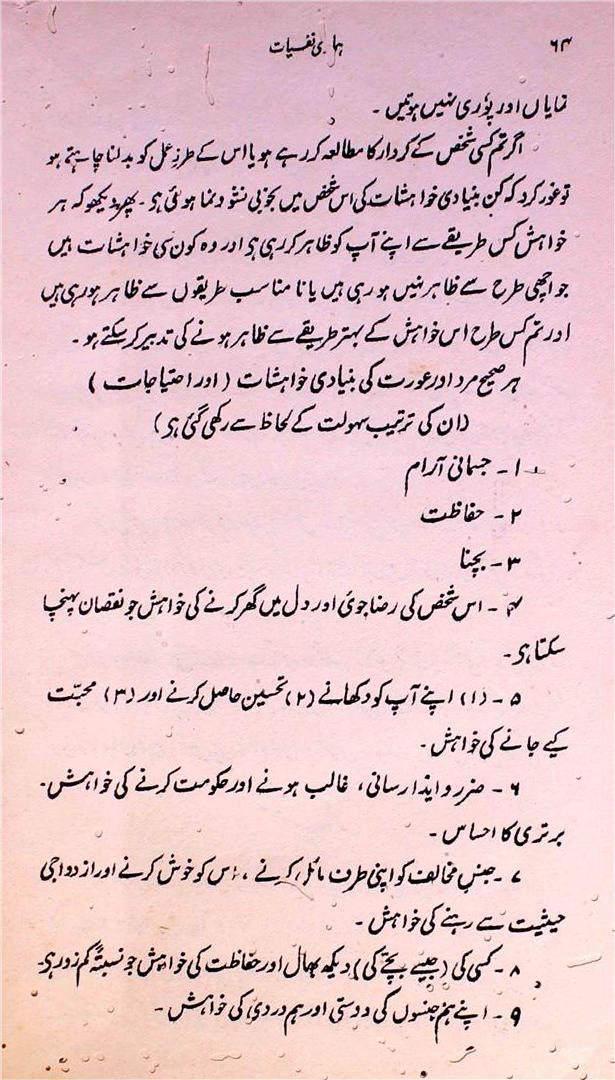 ۶۴
ہماری نفسیات
نمایاں اور پوری نہیں ہوتیں ۔
اگر تم کسی شخص کے کردار کا مطالعہ کر رہے ہو یا اس کے طرزِ عمل کو بدلنا چاہتے ہو
تو غور کرو کہ کن بنیادی خواہشات کی اس شخص میں بخوبی نشو و نما ہوئی ہی ۔ پھر دیکھو کہ ہر
خواہش کس طریقے سے اپنے آپ کو ظاہر کر رہی ہی اور وہ کون سی خواہشات ہیں
جو اچھی طرح سے ظاہر نہیں ہو رہی ہیں یا نا مناسب طریقوں سے ظاہر ہو رہی ہیں
اور تم کس طرح اس خواہش کے بہتر طریقے سے ظاہر ہونے کی تدبیر کر سکتے ہو ۔
ہر صحیح مرد اور عورت کی بنیادی خواہشات ( اور احتیاجات )
(ان کی ترتیب سہولت کے لحاظ سے رکھی گئی ہی )
۱ ۔ جسمانی آرام
۲ ۔ حفاظت
۳ ۔ بچنا
۴ ۔ اس شخص کی رضا جوئی اور دل میں گھر کرنے کی خواہش جو نقصان پہنچا
سکتا ہی ۔
۵ ۔ (۱) اپنے آپ کو دکھانے (۲) تحسین حاصل کرنے اور (۳) محبّت
کیے جانے کی خواہش ۔
۶ ۔ ضرر و ایذا رسانی ، غالب ہونے اور حکومت کرنے کی خواہش ۔
برتری کا احساس ۔
۷ ۔ جنسِ مخالف کو اپنی طرف مائل کرنے ، اس کو خوش کرنے اور ازدواجی
حیثیت سے رہنے کی خواہش ۔
۸ ۔ کسی کی (جیسے بچّے کی) دیکھ بھال اور حفاظت کی خواہش جو نسبتہً کم زور ہی ۔
۹ ۔ اپنے ہم جنسوں کی دوستی اور ہم دردی کی خواہش ۔